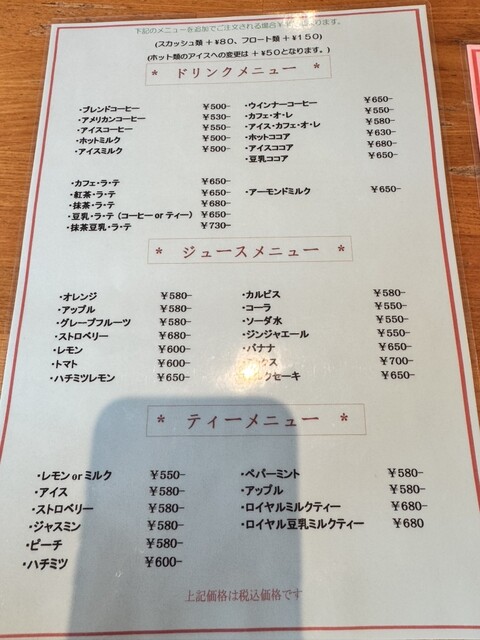 下記のメニューを追加でご注文される場合
(スカッシュ類 + ¥80、フロート類 + ¥150)
(ホット類のアイスへの変更は + ¥50となります。)
* ドリンクメニュー *
・ブレンドコーヒー ¥500-
・アメリカンコーヒー ¥530-
・アイスコーヒー ¥550-
・ホットミルク ¥500-
・アイスミルク ¥500-
・ウインナーコーヒー ¥650-
・カフェ・オ・レ ¥550-
・アイス・カフェ・オ・レ ¥580-
・ホットココア ¥630-
・アイスココア ¥680-
・豆乳ココア ¥650-
・カフェ・ラ・テ ¥650-
・紅茶・ラ・テ ¥650-
・抹茶・ラ・テ ¥680-
・豆乳・ラ・テ (コーヒー or ティー) ¥650-
・抹茶豆乳・ラ・テ ¥730-
・アーモンドミルク ¥650-
* ジュースメニュー *
・オレンジ ¥580-
・アップル ¥580-
・グレープフルーツ ¥580-
・ストロベリー ¥680-
・レモン ¥600-
・トマト ¥600-
・ハチミツレモン ¥650-
・カルピス ¥580-
・コーラ ¥550-
・ソーダ水 ¥550-
・ジンジャエール ¥550-
・バナナ ¥650-
¥700-
クセーキ ¥650-
* ティーメニュー *
・レモン or ミルク ¥550-
・アイス ¥580-
・ストロベリー ¥580-
・ジャスミン ¥580-
・ピーチ ¥580-
・ハチミツ ¥600-
・ペパーミント ¥580-
・アップル ¥580-
・ロイヤルミルクティー ¥680-
・ロイヤル豆乳ミルクティー ¥680
上記価格は税込価格です